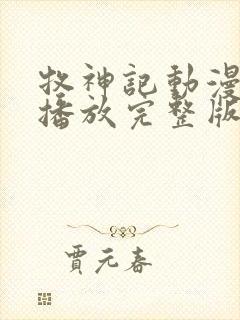 牧神記動漫
播放完整版
賈元春